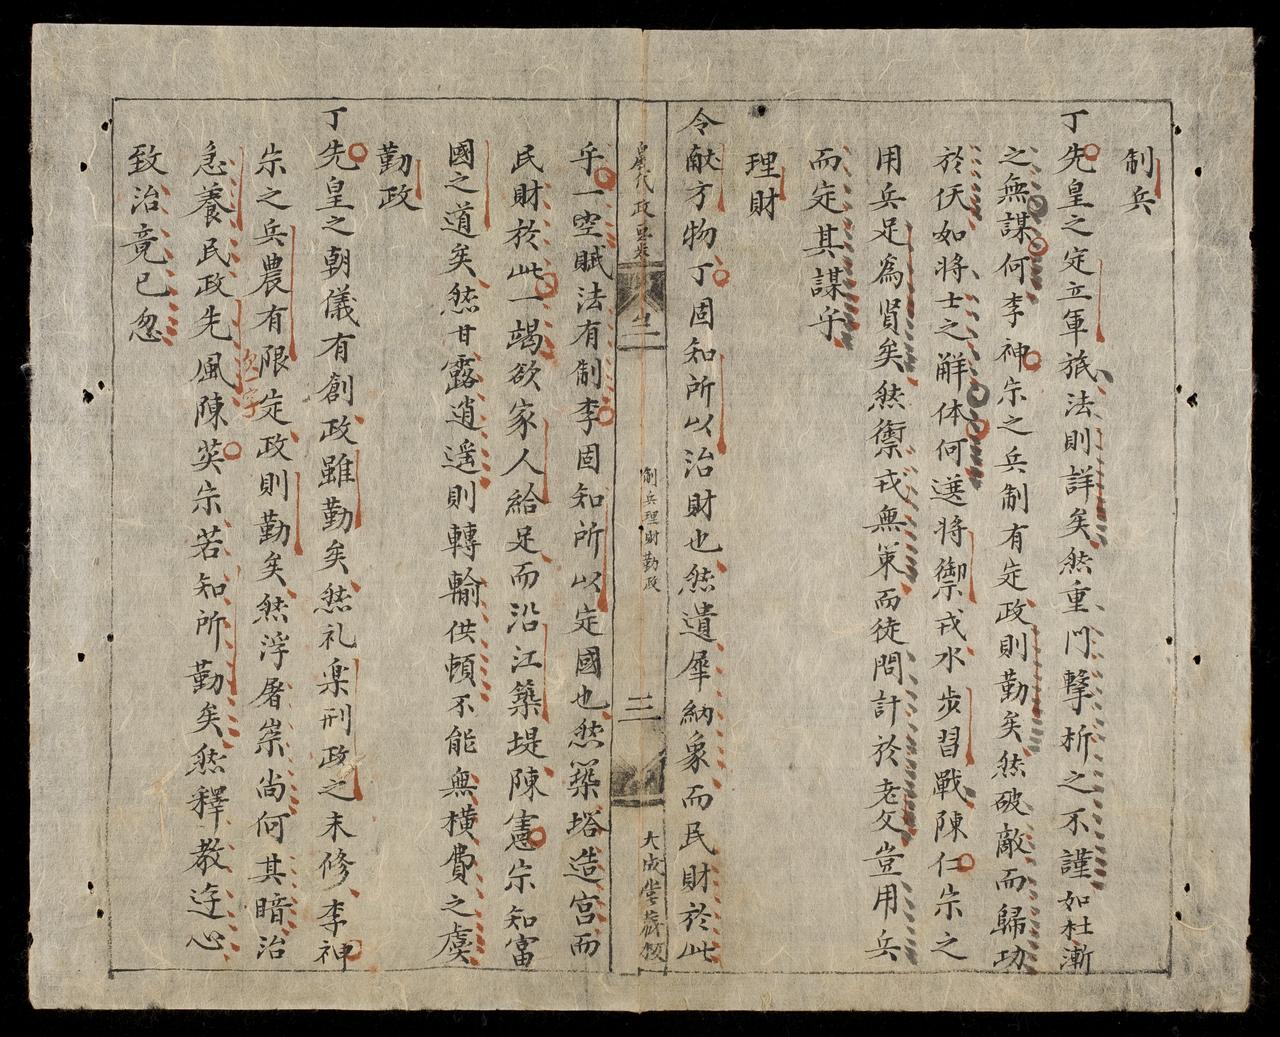 制兵
丁先皇之定立軍旅法則詳矣然重門擊柝之不謹如杜漸
之無謀何李神宗之兵制有定政則勤矣然破敵而歸功
於仸如將士之觧体何選將禦戎水步習戰陳仁宗之
用兵足為賢矣然禦戎無策而徒問計於老父豈用兵
而定其謀乎
理財
令献方物丁固知所以治財也然遺犀納象而民財於此
皇代政要
制兵理財勤政
三
大成堂蔵板
乎一空賦法有制李固知所以定國也然築塔造宫而
民財於此一竭欲家人給足而沿江築堤陳憲宗知富
國之道矣然甘露逍遥則轉輸供頓不能無横費之虞
勤政
丁先皇之朝儀有創政雖勤矣然礼楽刑政之未修李神
宗之兵農有限定政則勤矣然浮屠崇尚何其暗治
急養民政先風陳英宗若知所勤矣然釋教迋心
致治竟已忽